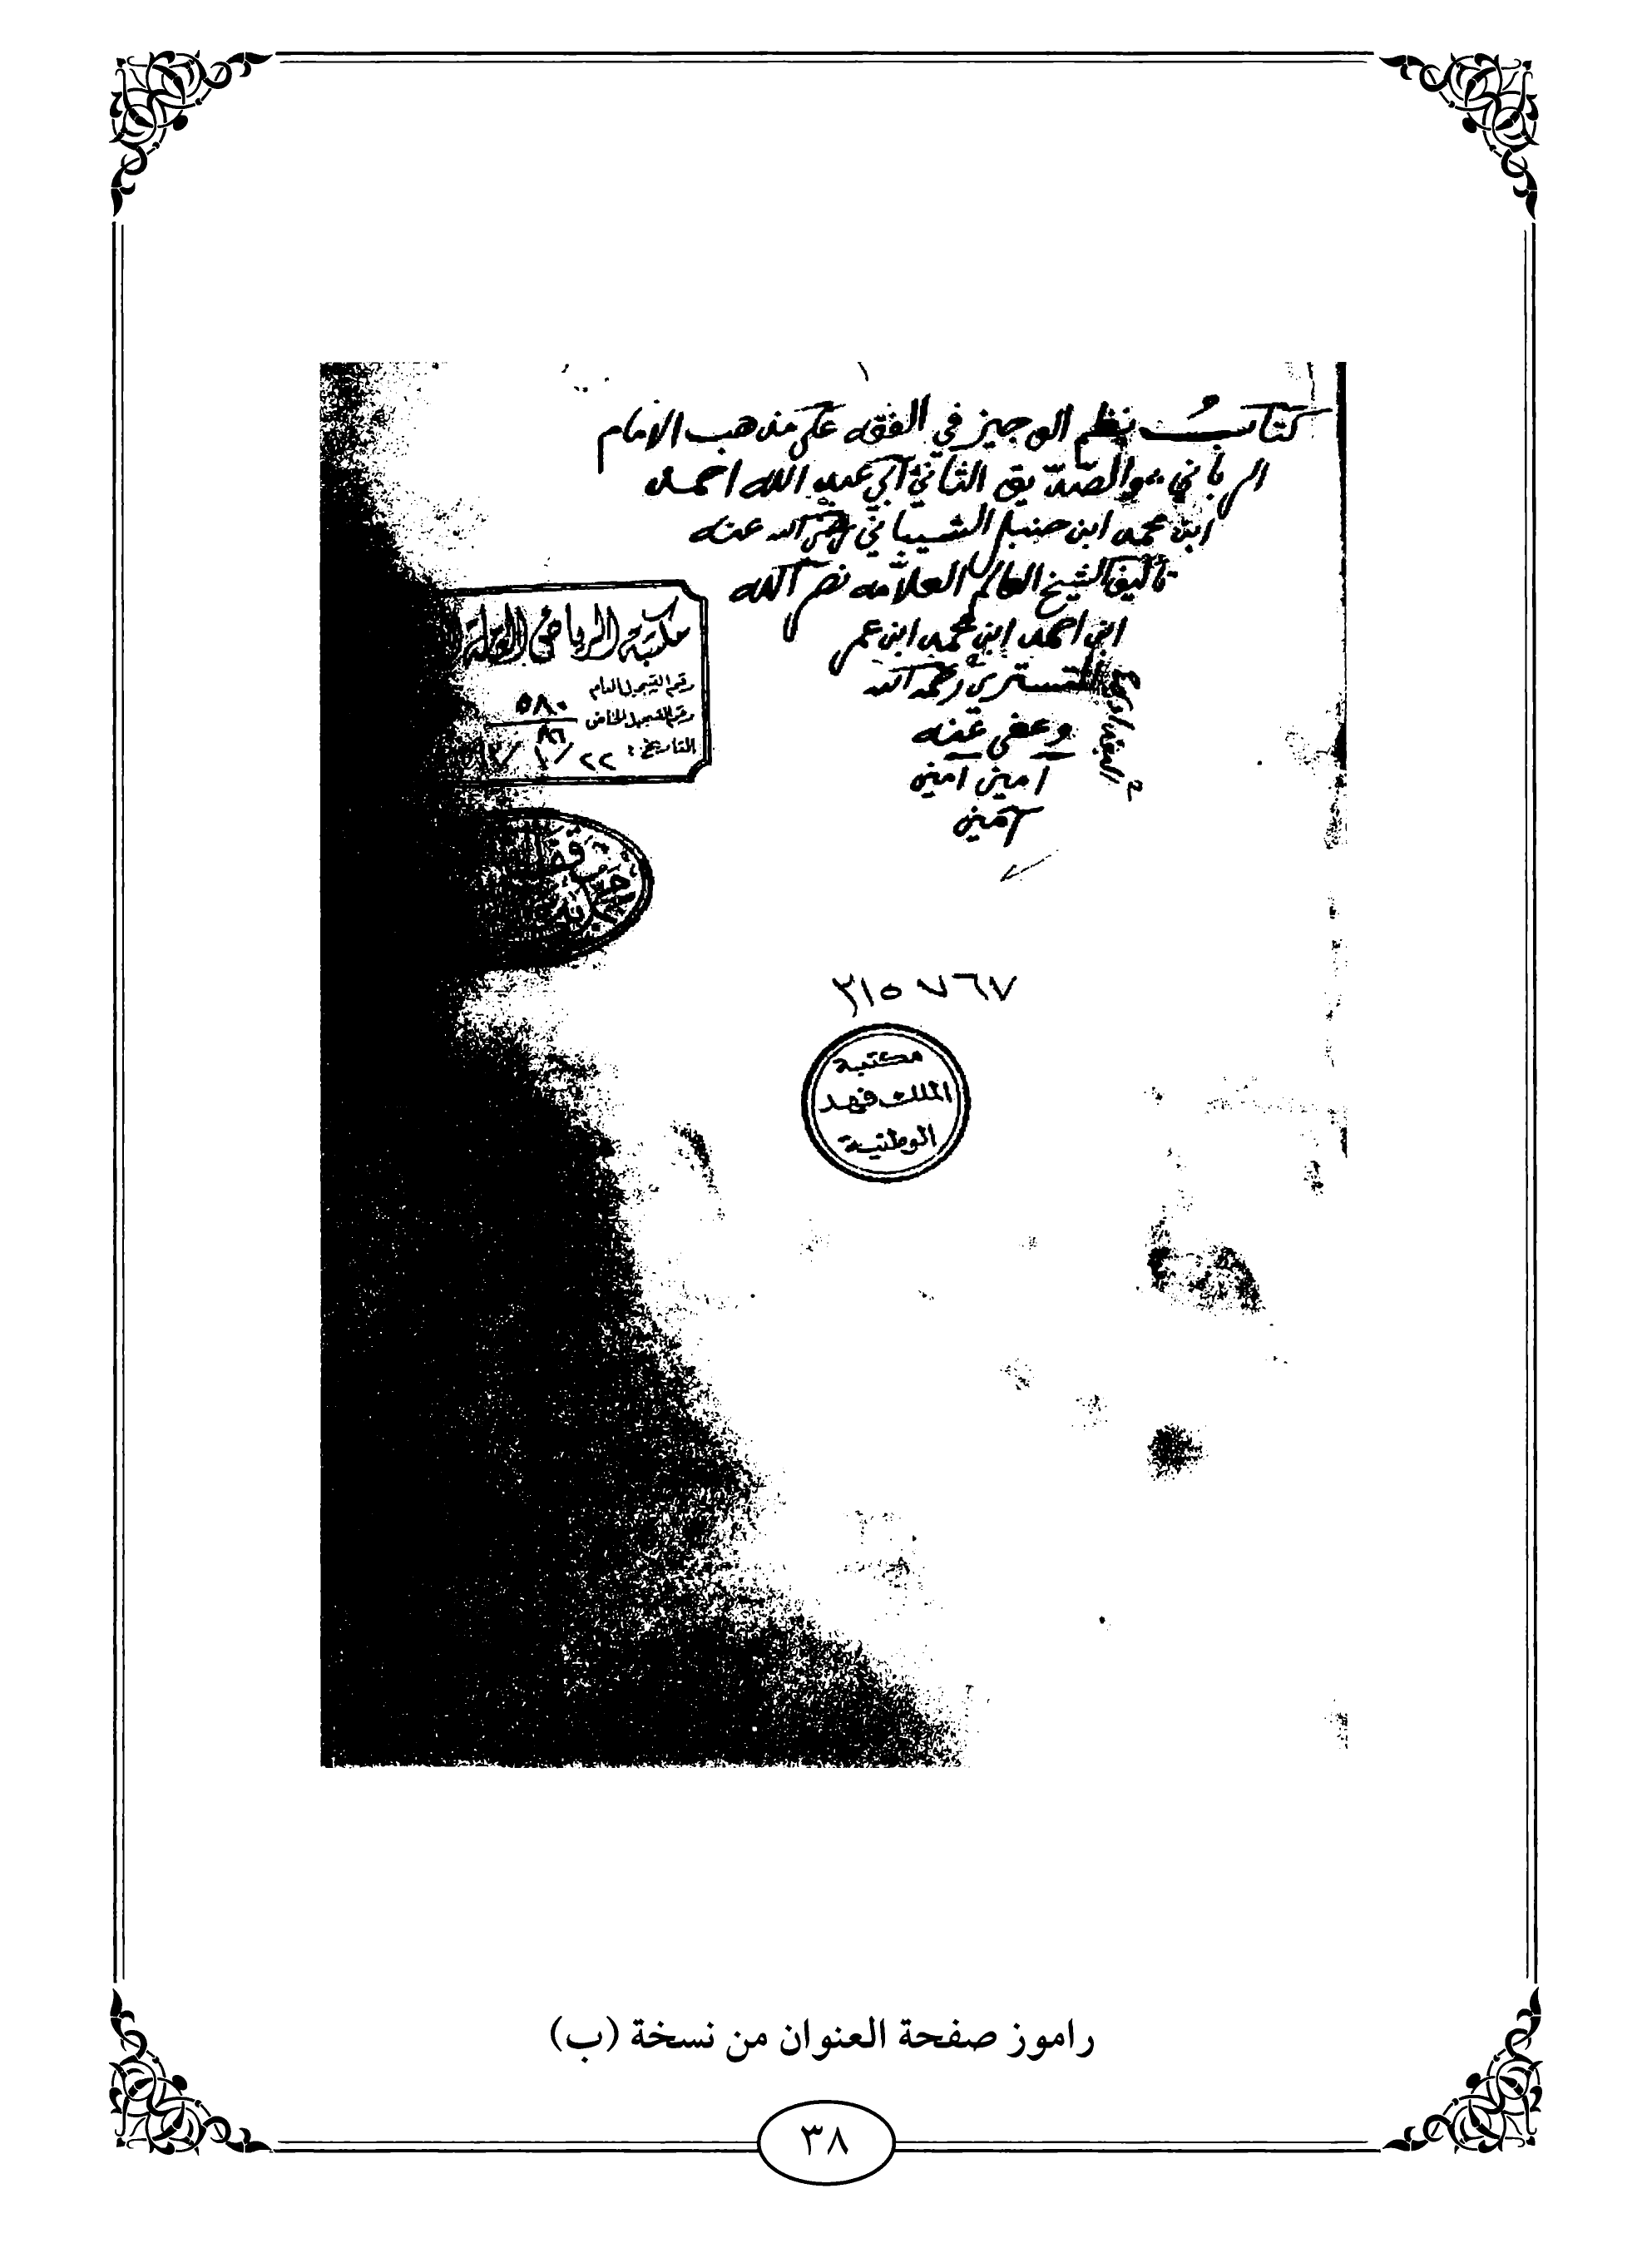 كتاب نظم الوجيز في الفقه على مذهب الامام
الرباني والصديق الثاني ابي عبد الله احمد
ابن محمد ابن حنبل الشيباني رضي الله عنه
تأليف الشيخ العالم العلامه نصر الله
ابن احمد ابن محمد ابن عمر
التستري رحمه الله
البغدادي
وعفى عنه
امين امين
آمين
مكتبة الرياض
رقم التسجيل العام
٥٨٠
رقم التسجيل الخاص
٨٦
التاريخ: ٢٢/١٠/
٣١٥٧٦٧
مكتبة
الملك فهد
الوطنية
راموز صفحة العنوان من نسخة (ب)
٣٨